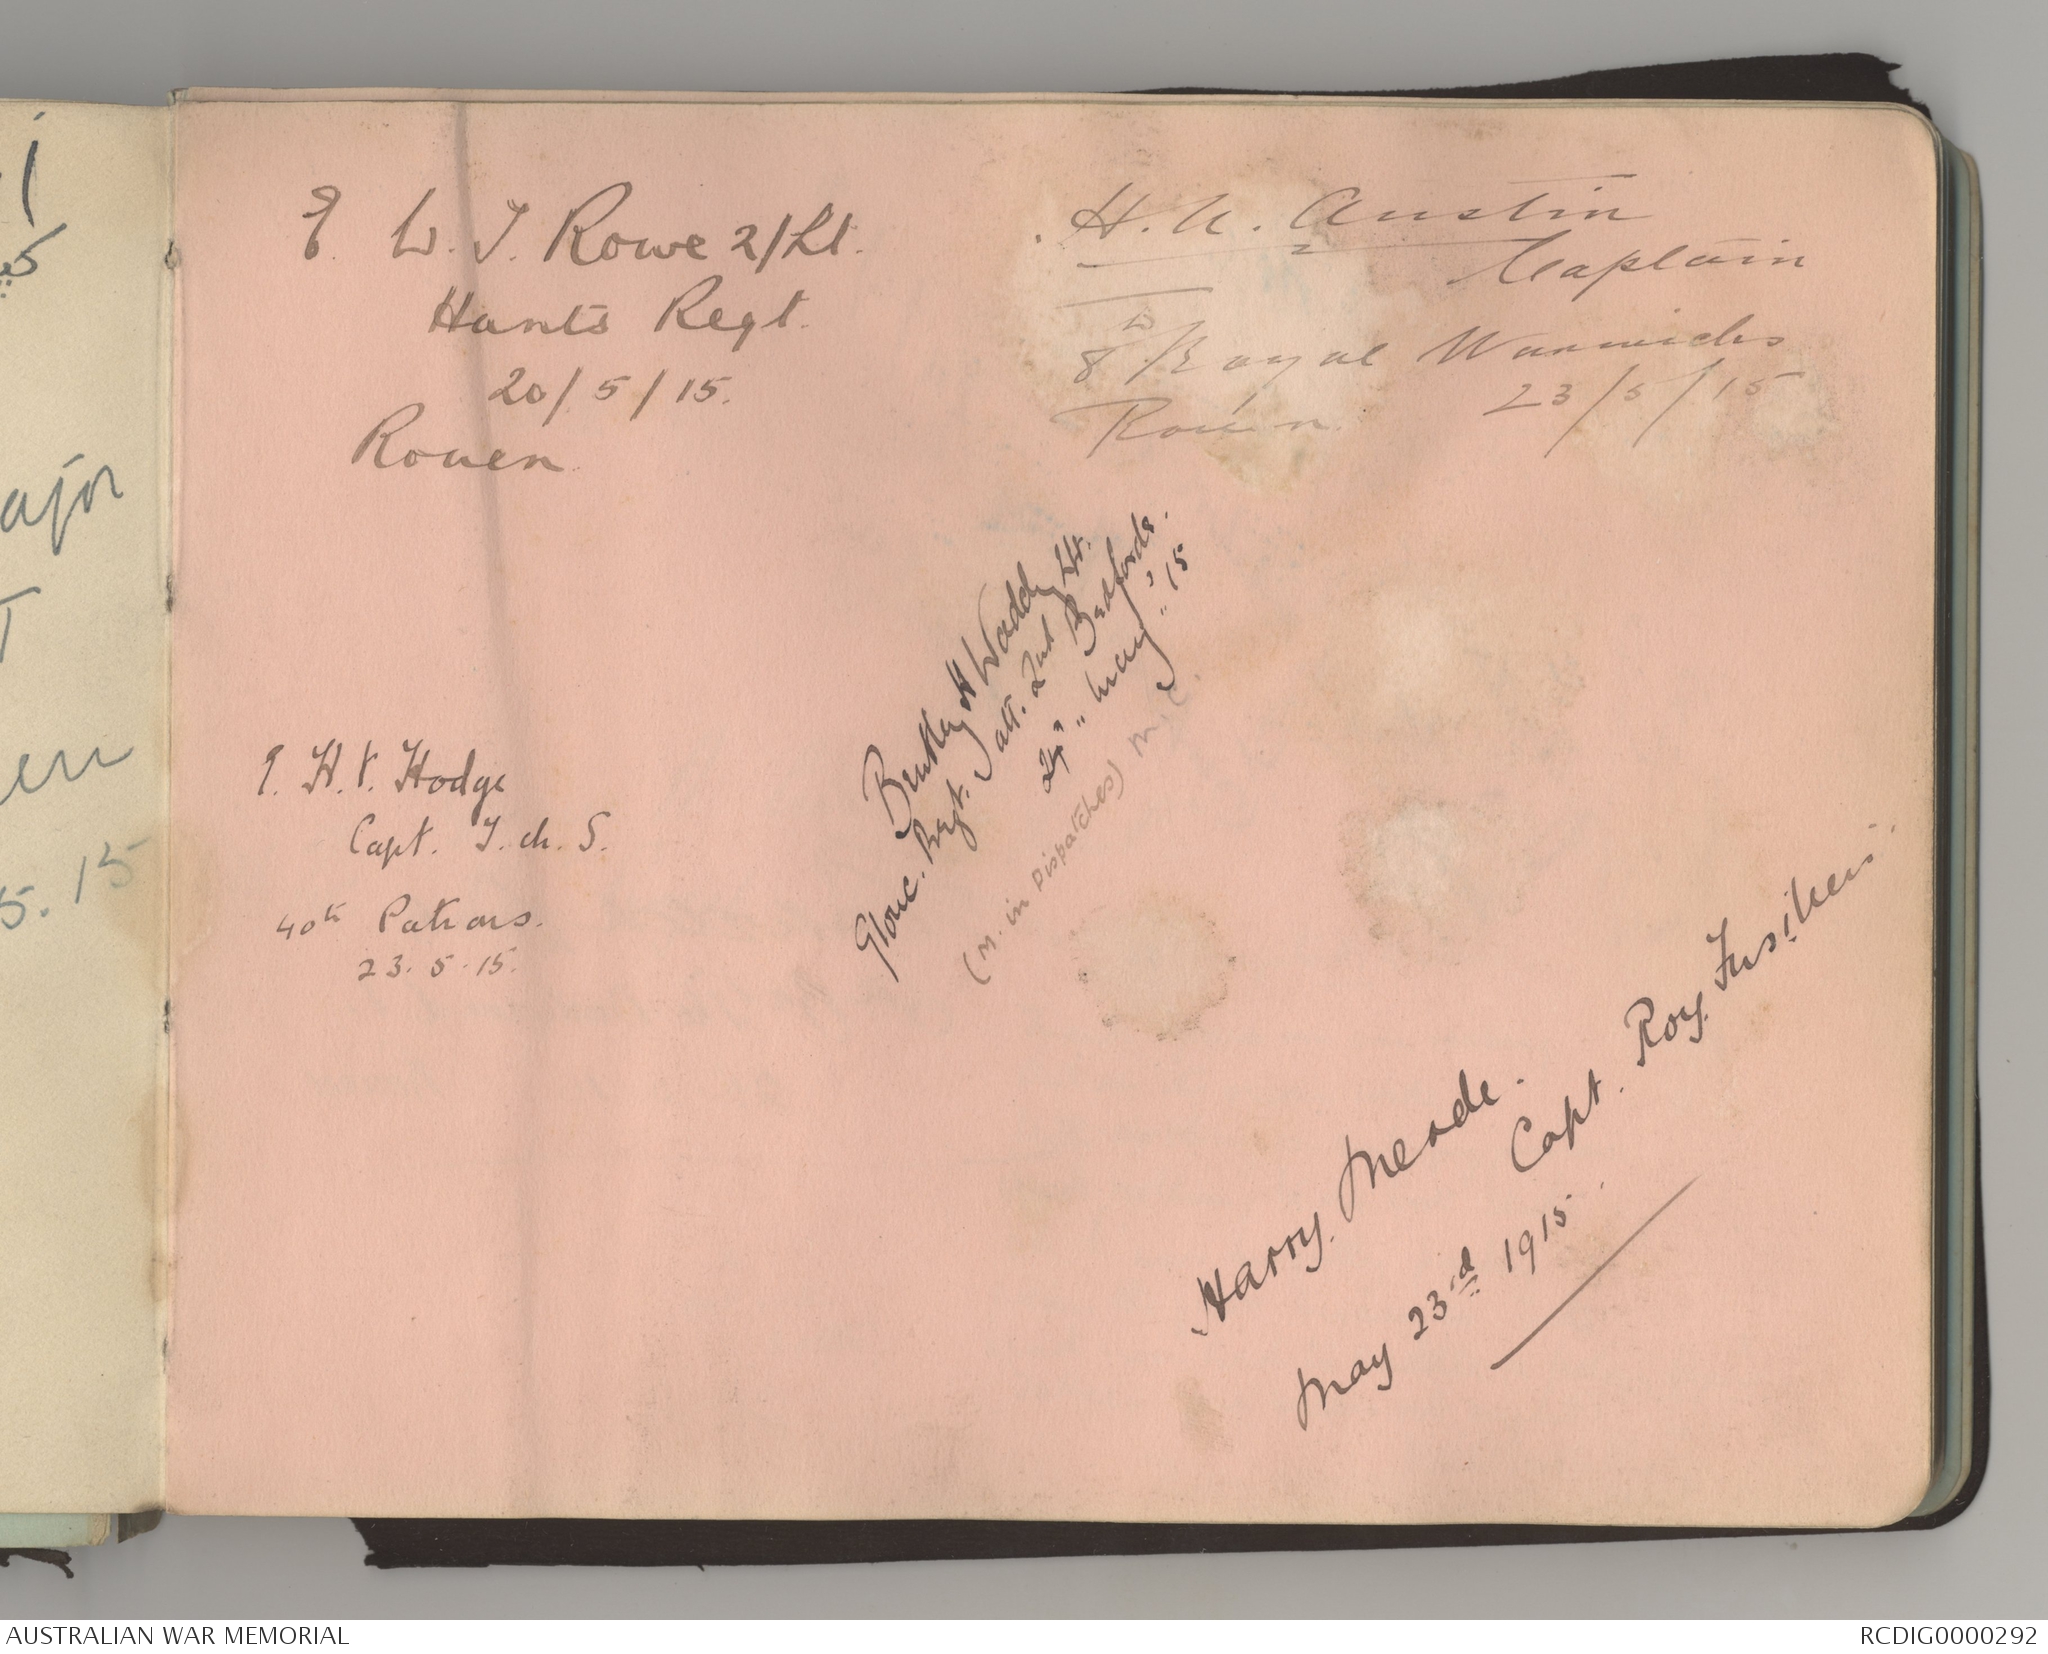 E. W. J. Rowe 2/Lt.
Hants Regt.
20/5/15.
Rouen
H. A. Austin
Captain
8th Royal Warwicks
Rouen 23/5/15
Bentley H Waddy Lt.
Glouc. Regt. att. 2nd Bedfords.
24" " May " '15
(M. in Dispatches) M.C.
E. H. V. Hodge
Capt. I. M. S.
40th Pathans.
23.5.15.
Harry Meade.
Capt. Roy. Fusiliers.
May 23rd 1915.
ajor
T
en
5.15
AUSTRALIAN WAR MEMORIAL
RCDIG0000292